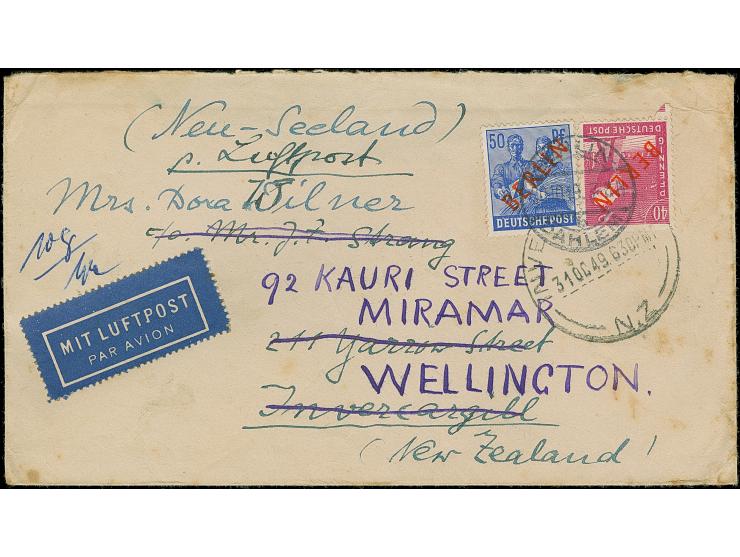 (Neu-Seeland)
p. Luftpost
Mrs. Dora Wilner
c/o Mr. J. F. Strang
92 KAURI STREET
MIRAMAR
211 Yarrow Street
WELLINGTON.
Invercargill
(New Zealand!
10g
MIT LUFTPOST
PAR AVION
50 PF
BERLIN
DEUTSCHE POST
DEUTSCHE POST
PFENNIG
BERLIN
40
31 OC 49 6 30 PM
N.Z